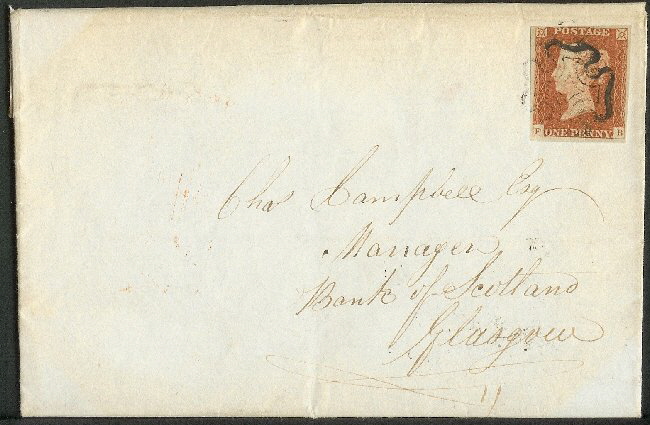 POSTAGE
ONE PENNY
F B
Chas Campbell Esq
Manager
Bank of Scotland
Glasgow